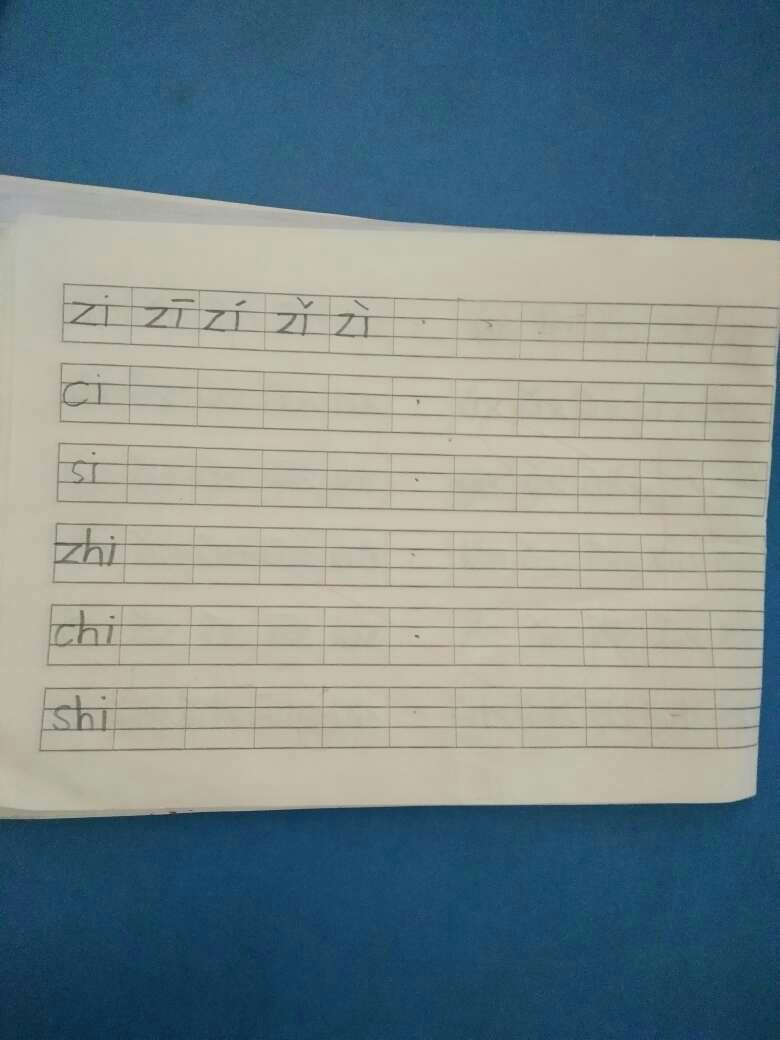 zi zī zí zǐ zì
ci
si
zhi
chi
shi